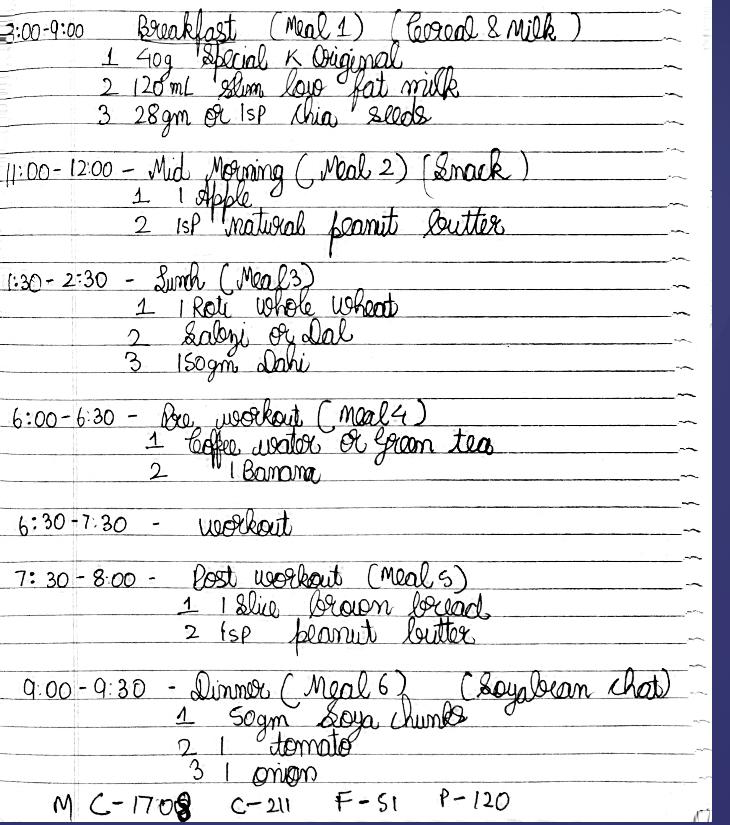 8:00-9:00 Breakfast (Meal 1) (Cereal & Milk)
1 40g Special K Original
2 120 mL slim low fat milk
3 28gm or 1sp chia seeds
11:00-12:00 - Mid Morning (Meal 2) (Snack)
1 1 Apple
2 1sp natural peanut butter
1:30-2:30 - Lunch (Meal 3)
1 1 Roti whole wheat
2 Sabzi or Dal
3 150gm Dahi
6:00-6:30 - Pre workout (Meal 4)
1 Coffee water or Green tea
2 1 Banana
6:30-7:30 - workout
7:30-8:00 - Post workout (Meal 5)
1 1 Slice brown bread
2 1sp peanut butter
9:00-9:30 - Dinner (Meal 6) (Soyabean chat)
1 50gm Soya chunks
2 1 tomato
3 1 onion
M C-1708 C-211 F-51 P-120